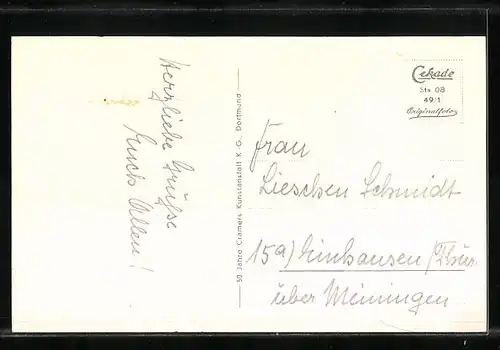 Herzliche Grüße
Euch Allen!
50 Jahre Cramers Kunstanstalt K.-G., Dortmund
Cekade
Stx 08
49/1
Originalfoto
Frau
Lieschen Schmidt
15a) Einhausen /Thür.
über Meiningen